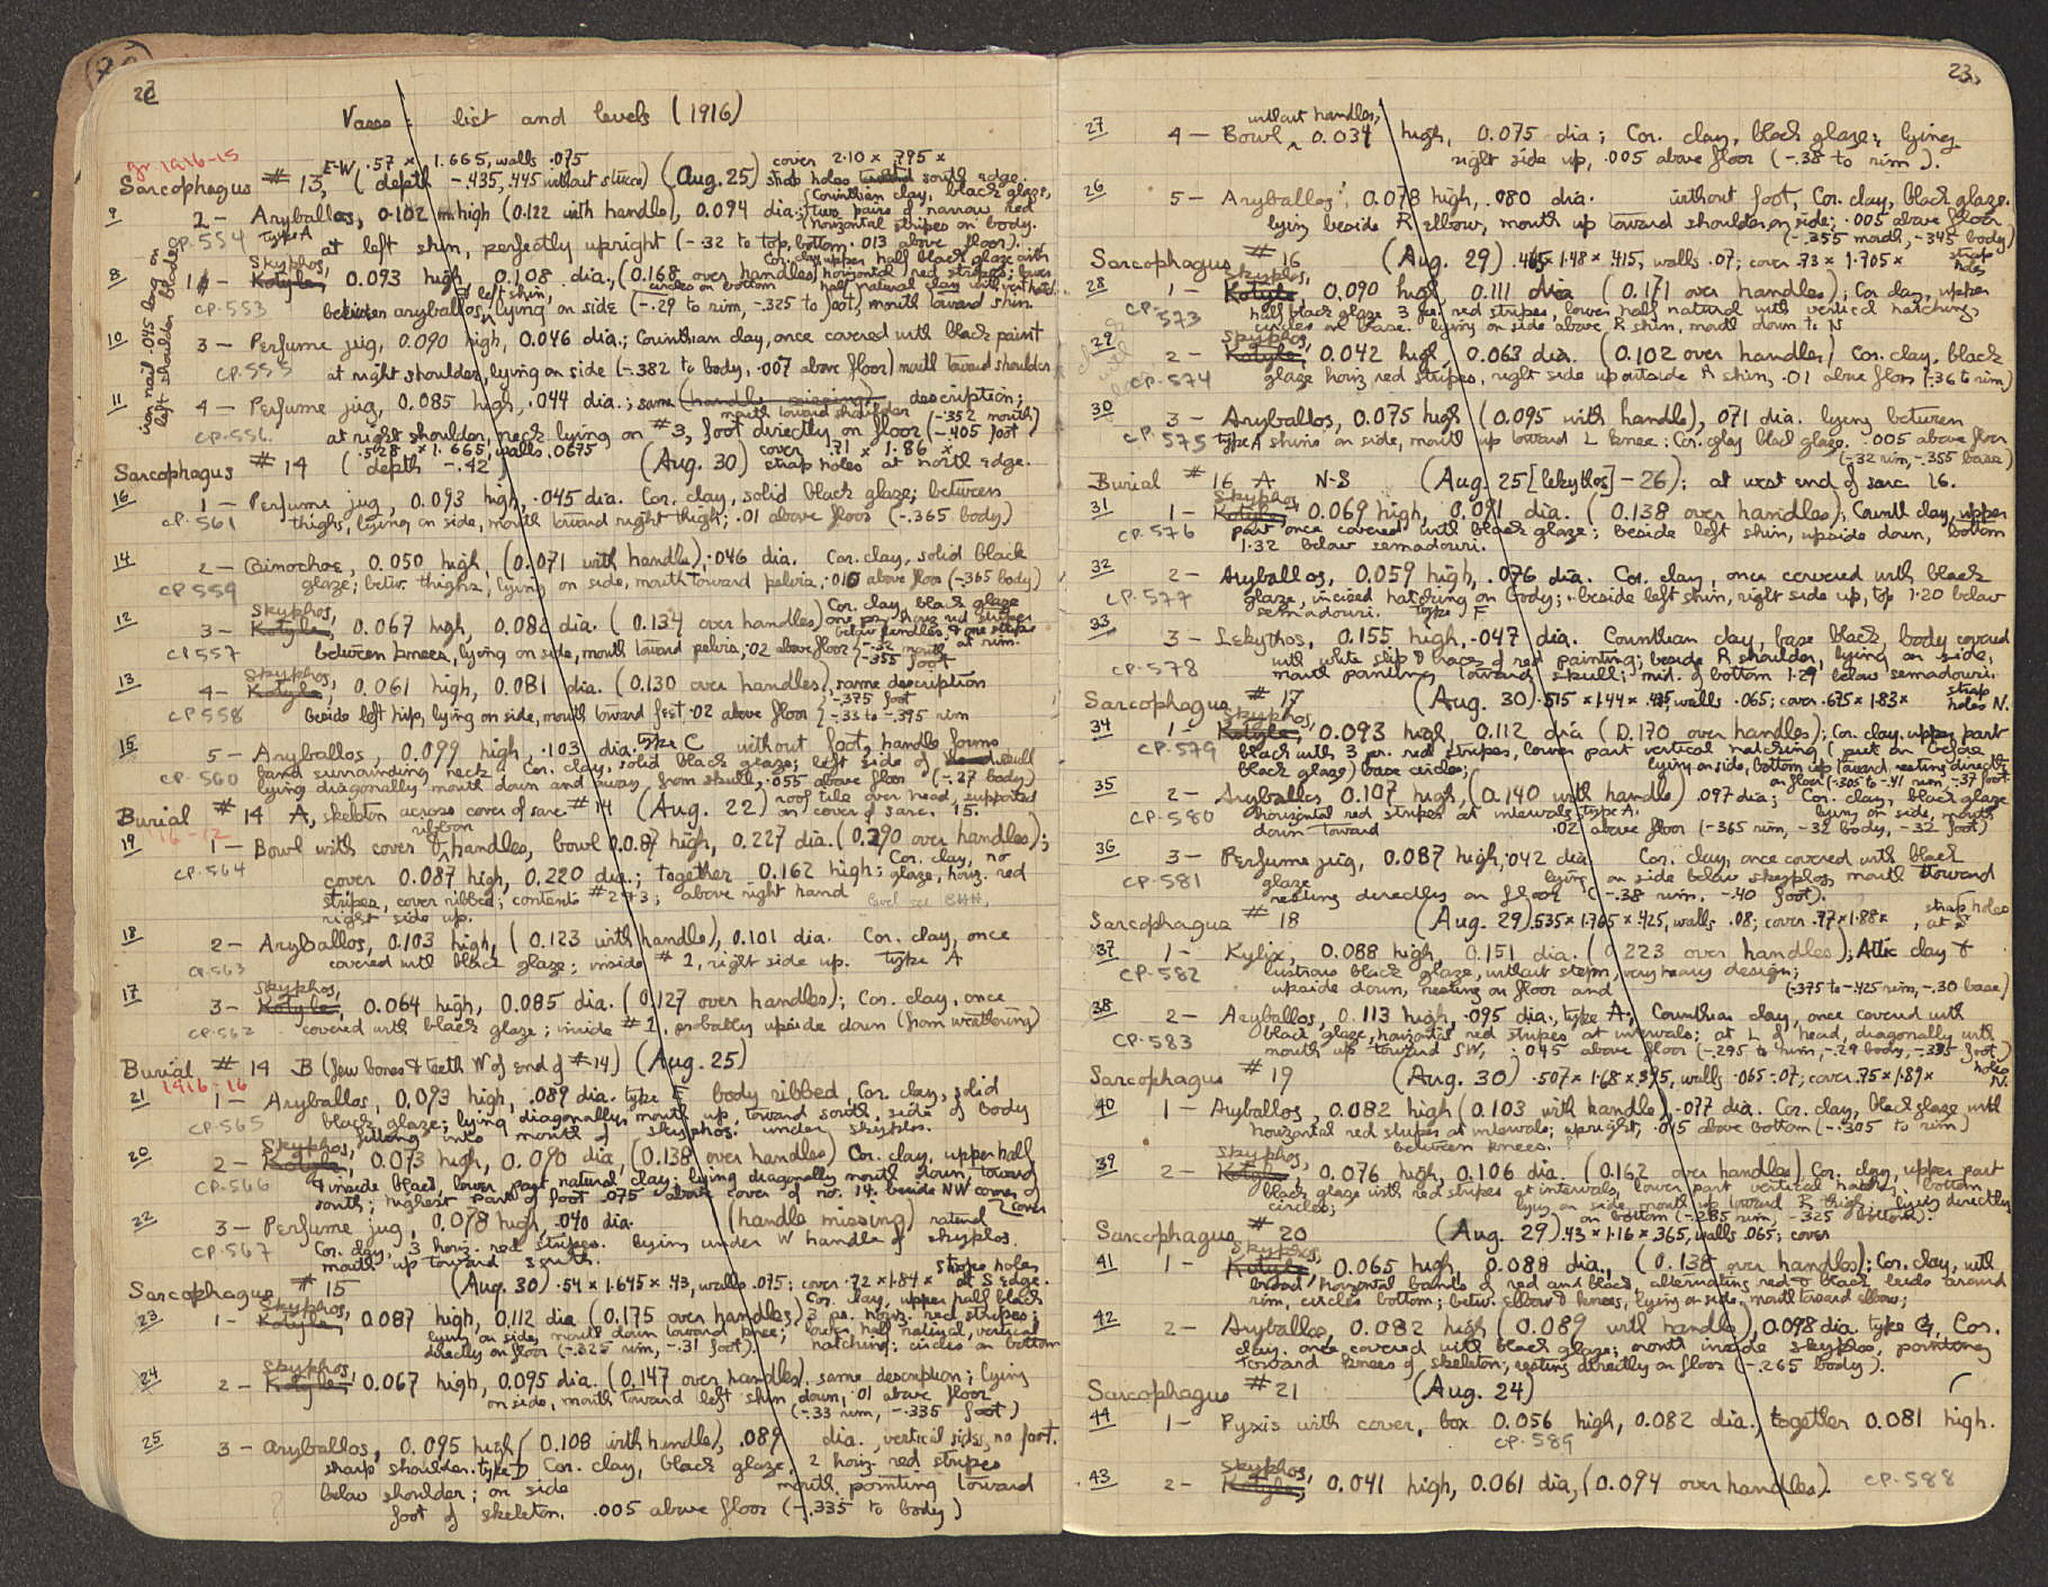 22
Vases: list and levels (1916)
gr 1916-15
E-W .57 × 1.665, walls .075 cover 2.10 × .795 ×
Sarcophagus # 13, (depth -.435, .445 without stucco) (Aug. 25) strap holes south edge.
9 2 - Aryballos, 0.102 m. high (0.122 with handle), 0.094 dia.; Corinthian clay, black glaze, two pairs of narrow red horizontal stripes on body.
CP-554 type A at left shin, perfectly upright (-.32 to top, bottom .013 above floor).
iron nail .045 long on left shoulder blade
8 1 - Kotyle, Skyphos, 0.093 high, 0.108 dia., (0.168 over handles) Cor. clay, upper half black glaze with horizontal red stripes; lower half natural clay with vert. hatch. circles on bottom
CP-553 between aryballos & left shin, lying on side (-.29 to rim, -.325 to foot), mouth toward shin.
10 3 - Perfume jug, 0.090 high, 0.046 dia.; Corinthian clay, once covered with black paint
CP-555 at right shoulder, lying on side (-.382 to body, .007 above floor) mouth toward shoulder
11 4 - Perfume jug, 0.085 high, .044 dia.; same (handle missing) description;
mouth toward shoulder
CP-556 at right shoulder, neck lying on #3, foot directly on floor (-.352 mouth) (-.405 foot
.528 × 1.665, walls .0675 cover .71 × 1.86 ×
Sarcophagus # 14 (depth -.42) (Aug. 30) strap holes at north edge.
16 1 - Perfume jug, 0.093 high, .045 dia. Cor. clay, solid black glaze; between
CP-561 thighs, lying on side, mouth toward right thigh; .01 above floor (-.365 body)
14 2 - Oinochoe, 0.050 high, (0.071 with handle), .046 dia. Cor. clay, solid black
CP 559 glaze; betw. thighs, lying on side, mouth toward pelvis; .010 above floor (-.365 body)
12 3 - Kotyle, Skyphos, 0.067 high, 0.082 dia. (0.134 over handles) Cor. clay, black glaze one pr. horiz red stripes below handles, & one stripe at rim.
CP 557 between knees, lying on side, mouth toward pelvis; .02 above floor (-.32 mouth (-.355 foot
13 4 - Kotyle, Skyphos, 0.061 high, 0.081 dia. (0.130 over handles), same description
CP 558 beside left hip, lying on side, mouth toward feet .02 above floor (-.375 foot (-.33 to -.395 rim
15 5 - Aryballos, 0.099 high, .103 dia. type C without foot, handle forms
CP 560 band surrounding neck; Cor. clay, solid black glaze; left side of skull
lying diagonally mouth down and away from skull, .055 above floor (-.27 body)
Burial # 14 A, skeleton across cover of sarc. #14 (Aug. 22) roof tile over head, supported on cover of sarc. 15.
16-12
19 1 - Bowl with cover & ribbon handles, bowl 0.087 high, 0.227 dia. (0.290 over handles);
CP 564 cover 0.087 high, 0.220 dia.; together 0.162 high; Cor. clay, no glaze, horiz. red
stripes, cover ribbed; contents #2+3; above right hand
right side up.
18 2 - Aryballos, 0.103 high, (0.123 with handle), 0.101 dia. Cor. clay, once
CP.563 covered with black glaze; inside #1, right side up. Type A
17 3 - Kotyle, Skyphos, 0.064 high, 0.085 dia. (0.127 over handles); Cor. clay, once
CP-562 covered with black glaze; inside #1, probably upside down (from weathering)
Burial # 14 B (few bones & teeth W of end of #14) (Aug. 25)
1916-16
21 1 - Aryballos, 0.093 high, .089 dia. type E body ribbed, Cor. clay, solid
CP-565 black glaze; lying diagonally mouth up, toward south, side of body
fitting into mouth of skyphos. under skyphos.
20 2 - Kotyle, Skyphos, 0.073 high, 0.090 dia, (0.138 over handles) Cor. clay, upper half
CP-566 & inside black, lower part natural clay; lying diagonally mouth down, toward
south; highest part of foot .075 above cover of no. 14. beside NW corner of cover
22 3 - Perfume jug, 0.078 high, .040 dia. (handle missing) natural
CP-567 Cor. clay, 3 horiz. red stripes. lying under W handle of skyphos.
mouth up toward south.
Sarcophagus # 15 (Aug. 30) .54 × 1.645 × .43, walls .075; cover .72 × 1.84 × strap holes at S edge.
23 1 - Kotyle, Skyphos, 0.087 high, 0.112 dia (0.175 over handles) Cor. clay, upper half black 3 prs. horiz. red stripes;
lying on side, mouth down toward knee; lower half natural, vertical
directly on floor (-.325 rim, -.31 foot). hatching; circles on bottom
24 2 - Kotyle, Skyphos, 0.067 high, 0.095 dia. (0.147 over handles). same description; lying
on side, mouth toward left shin, down, .01 above floor
(-.33 rim, -.335 foot)
25 3 - Aryballos, 0.095 high (0.108 with handle), .089 dia., vertical sides, no foot.
sharp shoulder. type D Cor. clay, black glaze, 2 horiz. red stripes
below shoulder; on side mouth pointing toward
foot of skeleton. .005 above floor (-.335 to body)
23.
27 4 - Bowl, without handles, 0.034 high, 0.075 dia; Cor. clay, black glaze; lying
right side up, .005 above floor (-.38 to rim).
26 5 - Aryballos, 0.078 high, .080 dia. without foot, Cor. clay, black glaze.
lying beside R elbow, mouth up toward shoulder, on side; .005 above floor
(-.355 mouth, -.345 body)
Sarcophagus # 16 (Aug. 29) .465 × 1.48 × .415, walls .07; cover .73 × 1.705 × strap holes
28 1 - Kotyle, Skyphos, 0.090 high, 0.111 dia (0.171 over handles); Cor clay, upper
CP-573 half black glaze 3 prs. red stripes, lower half natural with vertical hatching,
circles on base. lying on side above R shin, mouth down to N
29 2 - Kotyle, Skyphos, 0.042 high, 0.063 dia. (0.102 over handles) Cor. clay, black
CP-574 glaze horiz red stripes, right side up outside R shin, .01 above floor (-.36 to rim)
30 3 - Aryballos, 0.075 high (0.095 with handle), .071 dia. lying between
CP-575 type A shins on side, mouth up toward L knee; Cor. clay black glaze. .005 above floor
(-.32 rim, -.355 base)
Burial # 16 A N-S (Aug. 25 [lekythos] - 26); at west end of sarc 16.
31 1 - Kotyle, Skyphos, 0.069 high, 0.091 dia. (0.138 over handles); Corinth clay, upper
CP-576 part once covered with black glaze; beside left shin, upside down, bottom
1.32 below semadouri.
32 2 - Aryballos, 0.059 high, .076 dia. Cor. clay, once covered with black
CP-577 glaze, incised hatching on body; beside left shin, right side up, top 1.20 below
semadouri. Type F
33 3 - Lekythos, 0.155 high, .047 dia. Corinthian clay, base black, body covered
CP-578 with white slip & traces of red painting; beside R shoulder, lying on side,
mouth pointing toward skull; mid. of bottom 1.29 below semadouri.
Sarcophagus # 17 (Aug. 30) .515 × 1.44 × .435, walls .065; cover .675 × 1.83 × strap holes N.
34 1 - Kotyle, Skyphos, 0.093 high, 0.112 dia (0.170 over handles); Cor. clay, upper part
CP-579 black with 3 pr. red stripes, lower part vertical hatching (put on before
black glaze) base circles; lying on side, bottom up toward, resting directly
on floor (-.305 to -.41 rim, -.37 foot
35 2 - Aryballos, 0.107 high, (0.140 with handle) .097 dia; Cor. clay, black glaze
CP-580 horizontal red stripes at intervals type A. lying on side, mouth
down toward .02 above floor (-.365 rim, -.32 body, -.32 foot)
36 3 - Perfume jug, 0.087 high, .042 dia Cor. clay, once covered with black
CP-581 glaze lying on side below skyphos, mouth toward
resting directly on floor (-.38 rim, -.40 foot).
Sarcophagus # 18 (Aug. 29) .535 × 1.765 × .425, walls .08; cover .77 × 1.88 × , strap holes at S
37 1 - Kylix, 0.088 high, 0.151 dia. (0.223 over handles); Attic clay &
CP-582 lustrous black glaze, without stem, very heavy design;
upside down, resting on floor and (-.375 to -.425 rim, -.30 base)
38 2 - Aryballos, 0.113 high, .095 dia., type A, Corinthian clay, once covered with
CP-583 black glaze, horizontal red stripes at intervals; at L of head, diagonally with
mouth up toward SW, .045 above floor (-.295 to rim, -.29 body, -.335 foot)
Sarcophagus # 19 (Aug. 30) .507 × 1.68 × .395, walls .065-.07; cover .75 × 1.89 × holes N.
40 1 - Aryballos, 0.082 high (0.103 with handle), .077 dia. Cor. clay, black glaze with
horizontal red stripes at intervals; upright, .015 above bottom (-.305 to rim)
between knees.
39 2 - Kotyle, Skyphos, 0.076 high, 0.106 dia. (0.162 over handles) Cor. clay, upper part
black glaze with red stripes at intervals, lower part vertical hatching, bottom
circles; lying on side, mouth up toward R thigh; lying directly
on bottom (-.285 rim, -.325 bottom).
Sarcophagus # 20 (Aug. 29) .43 × 1.16 × .365, walls .065; cover
41 1 - Kotyle, Skyphos, 0.065 high, 0.088 dia., (0.138 over handles); Cor. clay, with
broad horizontal bands of red and black, alternating red & black beads around
rim, circles bottom; betw. elbow & knees, lying on side, mouth toward elbow;
42 2 - Aryballos, 0.082 high (0.089 with handle), 0.098 dia. type G, Cor.
clay. once covered with black glaze; mouth inside skyphos, pointing
toward knees of skeleton; resting directly on floor (-.265 body).
Sarcophagus # 21 (Aug. 24)
44 1 - Pyxis with cover, box 0.056 high, 0.082 dia., together 0.081 high.
CP-589
43 2 - Kotyle, Skyphos, 0.041 high, 0.061 dia, (0.094 over handles). CP-588